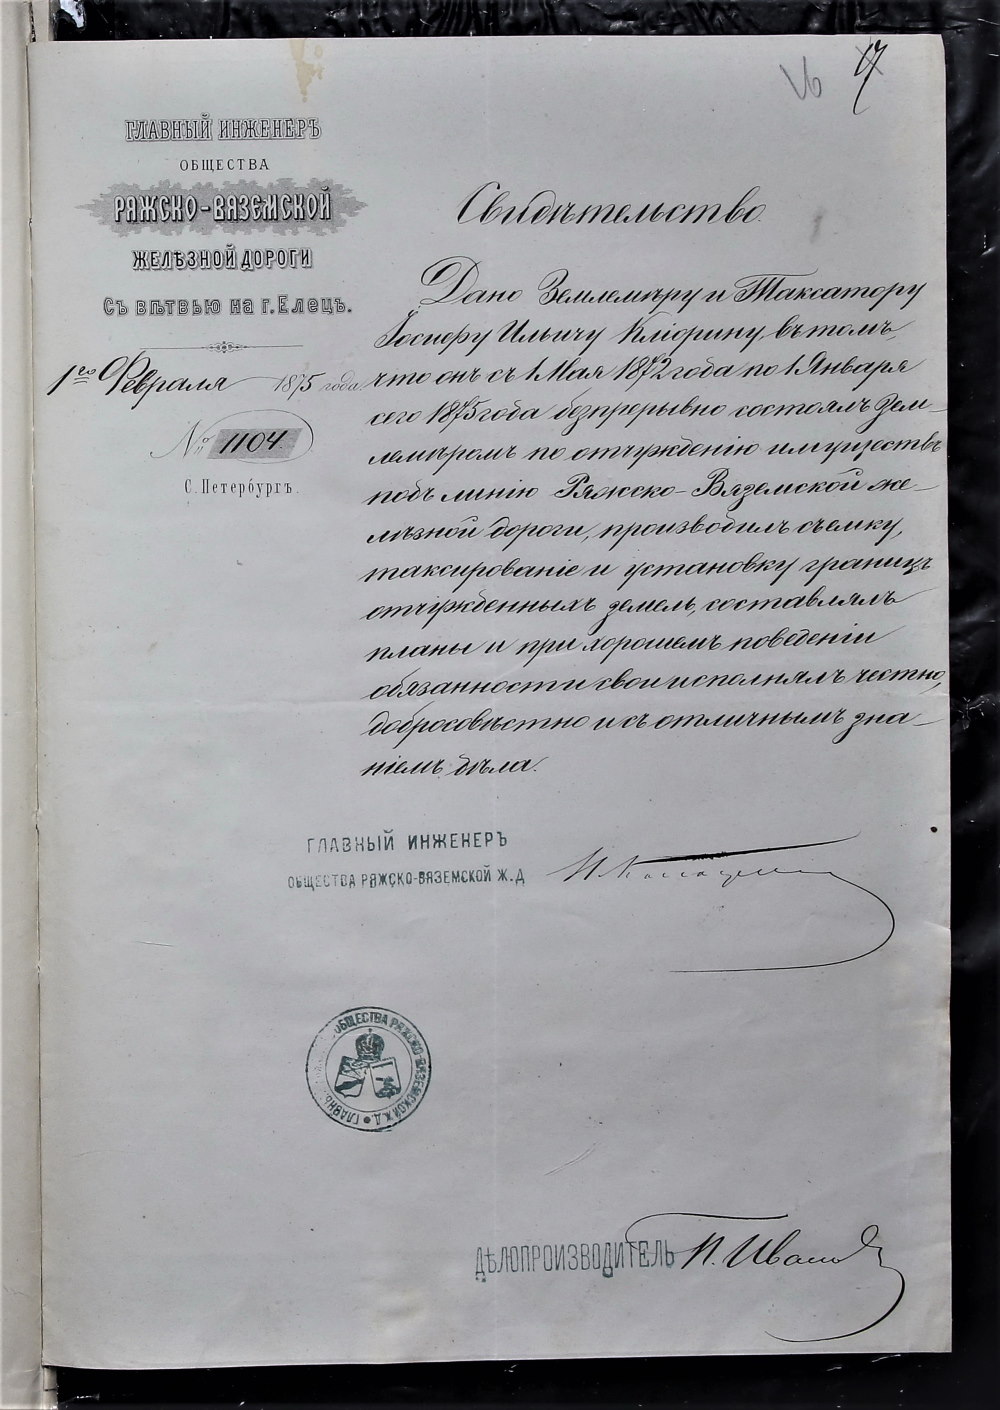 17
ГЛАВНЫЙ ИНЖЕНЕРЪ
ОБЩЕСТВА
РЯЖСКО-ВЯЗЕМСКОЙ
ЖЕЛѢЗНОЙ ДОРОГИ
Съ вѣтвью на г. Елецъ.
1го Февраля 1875 года.
№ 1104.
С. Петербургъ.
Свидѣтельство.
Дано Землемѣру и Таксатору
Іосифу Ильичу въ томъ,
что онъ съ 1 Мая 1872 года по 1 Января
сего 1875 года безпрерывно состоялъ Зем-
лемѣромъ по отчужденію имуществъ
подъ линію Ряжско-Вяземской же-
лѣзной дороги, производилъ съемку,
таксированіе и установку границъ
отчужденныхъ земель, составлялъ
планы и при хорошемъ поведеніи
обязанности свои исполнялъ честно,
добросовѣстно и съ отличнымъ зна-
ніемъ дѣла.
ГЛАВНЫЙ ИНЖЕНЕРЪ
ОБЩЕСТВА РЯЖСКО-ВЯЗЕМСКОЙ Ж.Д
ОБЩЕСТВА РЯЖСКО-ВЯЗЕМСКОЙ Ж.Д.
ДѢЛОПРОИЗВОДИТЕЛЬ П. Иванов